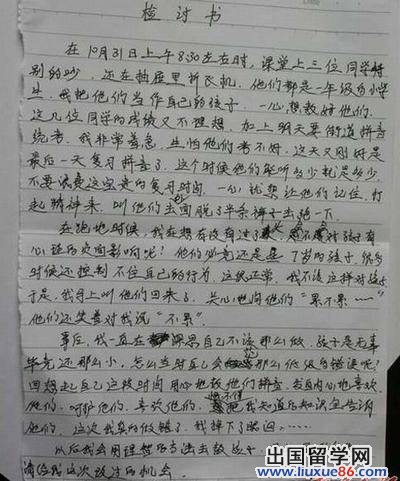 检讨书
在10月31日上午8:30左右时,课堂上三位同学特
别的吵,还在抽屉里折飞机,他们都是一年级的小学
生,我把他们当作自己的孩子,一心想教好他们。
这几位同学的成绩又不理想,加上明天要街道拼音
统考。我非常着急,生怕他们考不好,这天又刚好是
最后一天复习拼音了,这个时候他们能听多少就是多少,
不要浪费这宝贵的复习时间,一心就想让他们记住,打
起精神来,叫他们去
面脱了半条裤子去跑一下。
在跑地时候,我在想有没有过
对孩子有
心理的负面影响呢?他们必竟还是
7岁的孩子,很多
时候还控制不住自己的行为,这很正常,我不该这样对孩子
于是,我马上叫他们回来了,关心地问他们“累不累……”
他们还笑着对我说“不累”。
事后,我一直在
自己不该那么做,孩子是无辜
毕竟还那么小,怎么当时自己会
那么低级的错误呢?
回想起自己这段时间用心地教他们拼音,我自内心地喜欢
他们,呵护他们,喜欢他们,
我知道的知识全告诉
他们,这次我真的做错了,我掉下了眼泪……
以后我会用理智的方法去教孩子
请给我这次改过的机会
出国留学网
www.liuxue86.com